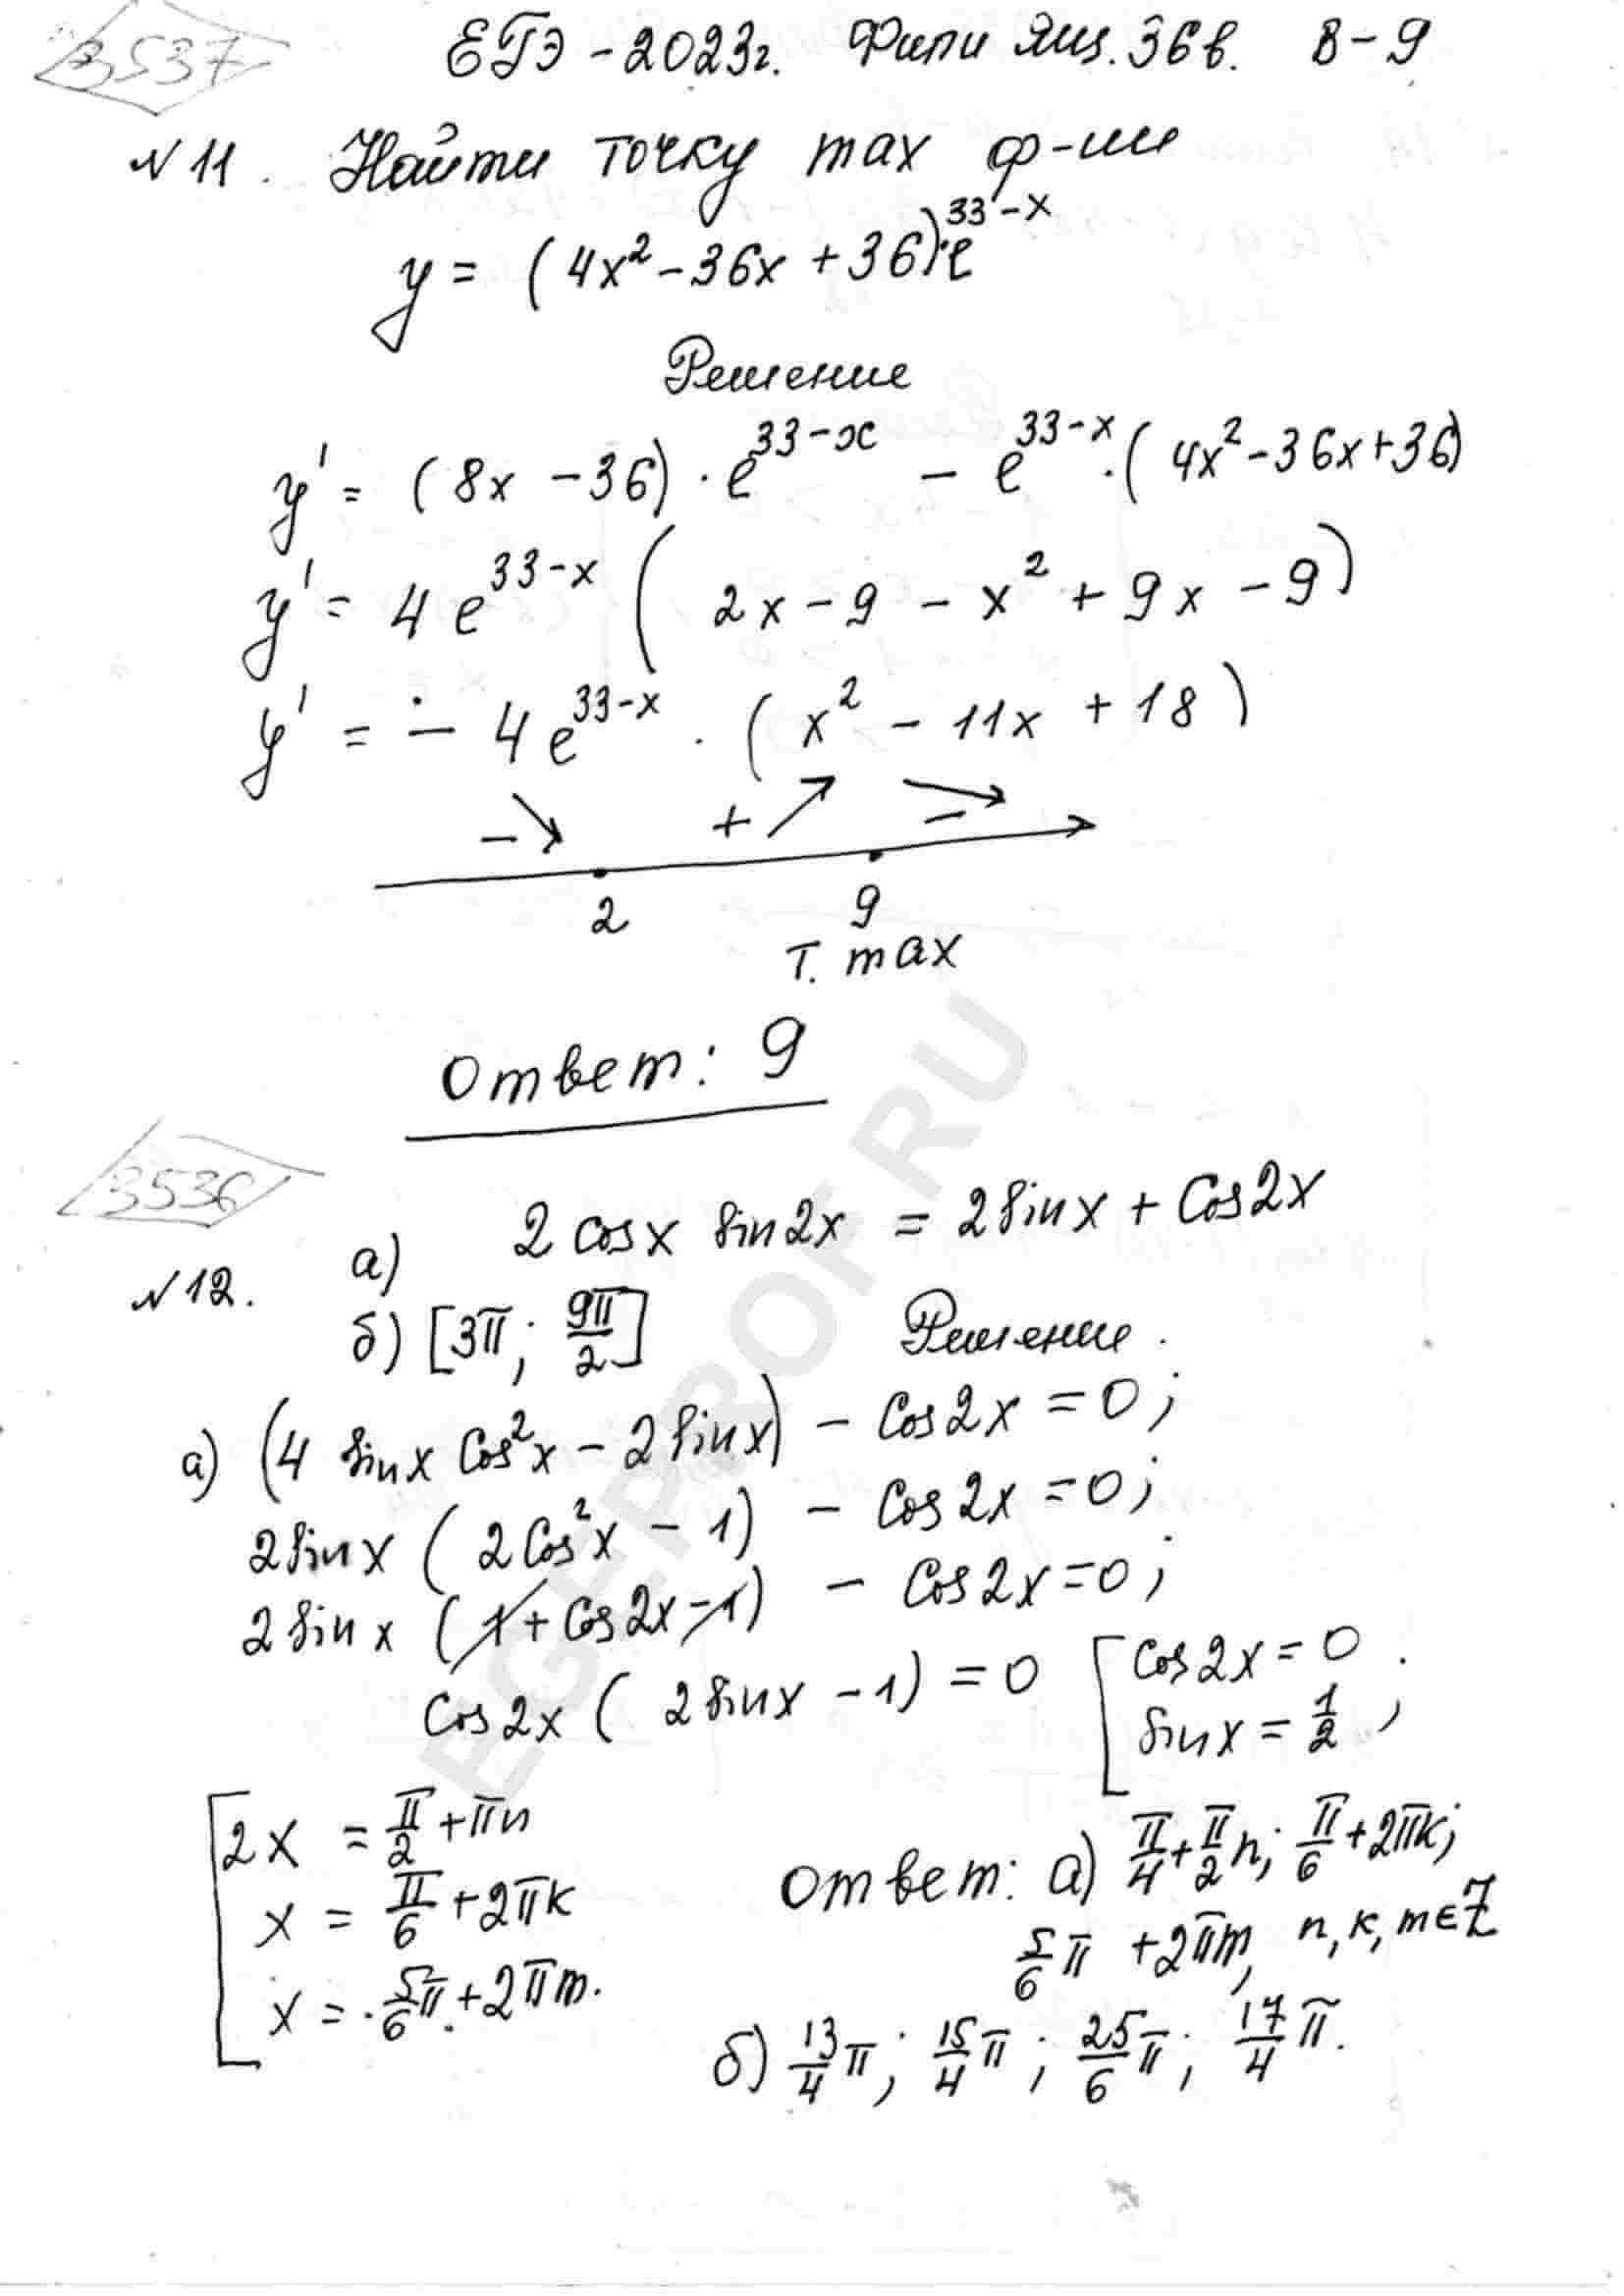 3537
ЕГЭ - 2023г. Фипи Ящ. 36 в. 8-9
№ 11. Найти точку max ф-ии
y = (4x² - 36x + 36)·e^(33-x)
Решение
y' = (8x - 36) · e^(33-x) - e^(33-x) · (4x² - 36x + 36)
y' = 4e^(33-x) (2x - 9 - x² + 9x - 9)
y' = - 4e^(33-x) · (x² - 11x + 18)
- ↘ + ↗ - ↘
2 9
т. max
Ответ: 9
3536
№ 12. а) 2 cos x sin 2x = 2 sin x + cos 2x
б) [3π; 9π/2] Решение.
а) (4 sin x cos² x - 2 sin x) - cos 2x = 0;
2 sin x (2 cos² x - 1) - cos 2x = 0;
2 sin x (1 + cos 2x - 1) - cos 2x = 0;
cos 2x (2 sin x - 1) = 0 [cos 2x = 0
sin x = 1/2;
[2x = π/2 + πn
x = π/6 + 2πk
x = 5/6 π + 2πm.
Ответ: а) π/4 + π/2 n; π/6 + 2πk;
5/6 π + 2πm, n, k, m ∈ Z
б) 13/4 π; 15/4 π; 25/6 π; 17/4 π.
EGEPROF.RU